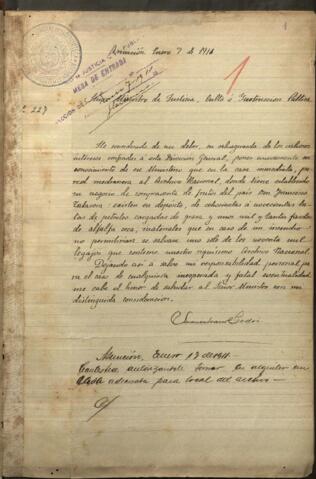 Asunción Enero 7 de 1911
MESA DE ENTRADA
1
Nº 227
Señor Ministro de Justicia, Culto é Instruccion Pública
Me considero de un deber, en salvaguarda de los valiosos
intereses confiados á esta Direccion General, poner nuevamente en
conocimiento de su Ministerio que en la casa inmediata, pa-
red medianera al Archivo Nacional, donde tiene establecido
su negocio de compraventa de frutos del país don Francisco
existen en depósito, de ochocientas á novecientas ba-
las de petulos cargadas de grasa, y unos mil y tantos fardos
de alfalfa seca, materiales que en caso de un incendio
no permitirian se salvase uno solo de los noventa mil
legajos que contiene nuestro riquísimo Archivo Nacional.
Dejando así á salvo mi responsabilidad personal pa-
ra el caso de cualquiera inesperada y fatal eventualidad
me cabe el honor de saludar al Señor Ministro con mi
distinguida consideracion.
Asunción, Enero 17 de 1911.
Contéstese autorizándole tomar en alquiler un
adecuada para local del archivo.